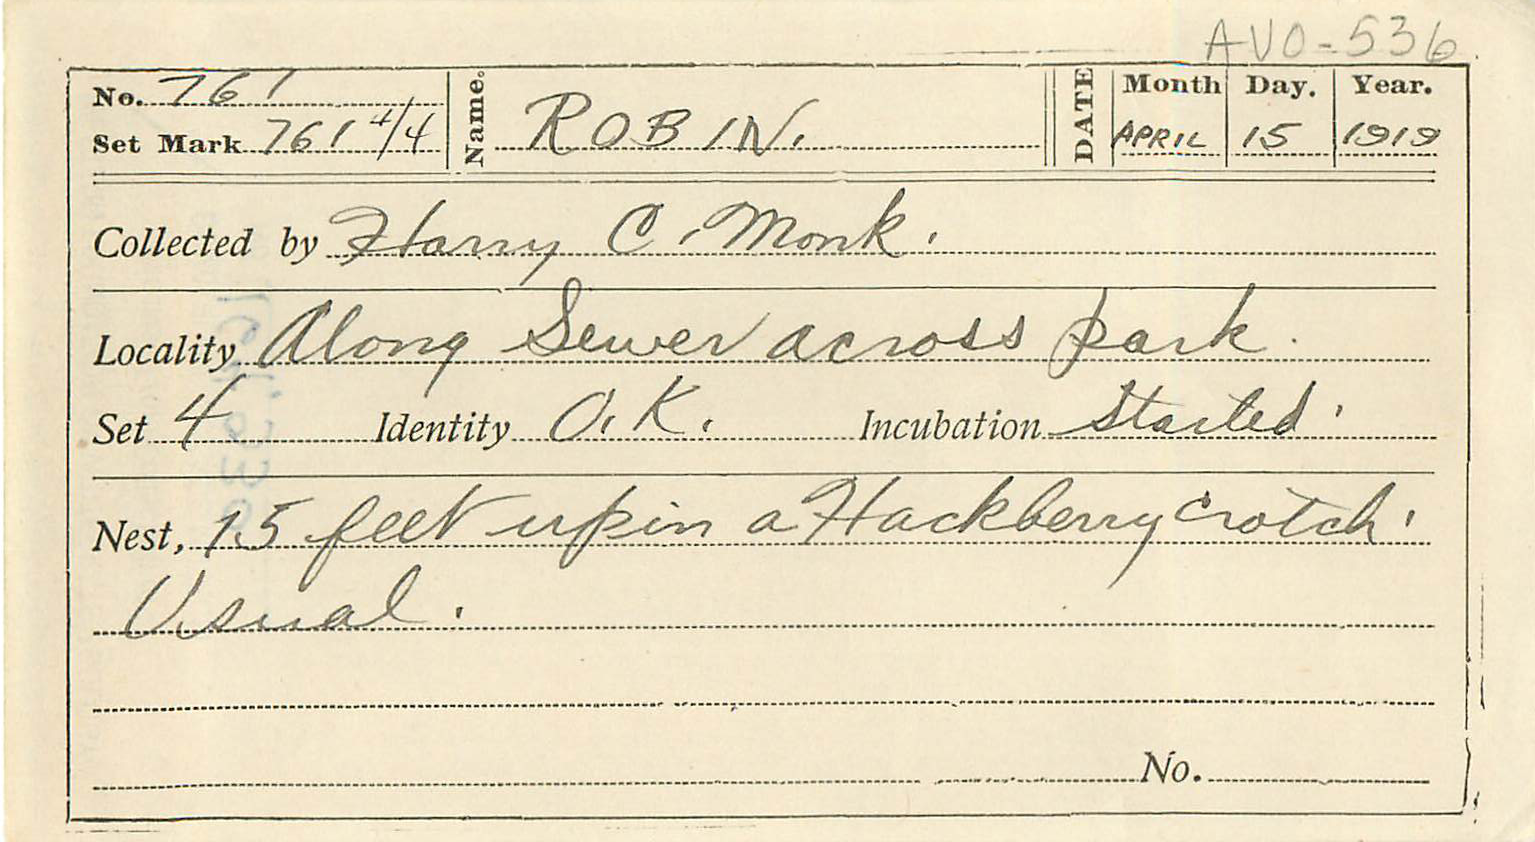 AVO-536
No. 761 Name. ROBIN. DATE Month Day. Year.
Set Mark 761 4/4 APRIL 15 1919
Collected by Harry C. Monk.
Locality Along Sewer across park.
Set 4 Identity O.K. Incubation Started.
Nest, 15 feet up in a Hackberry crotch.
Usual.
No.